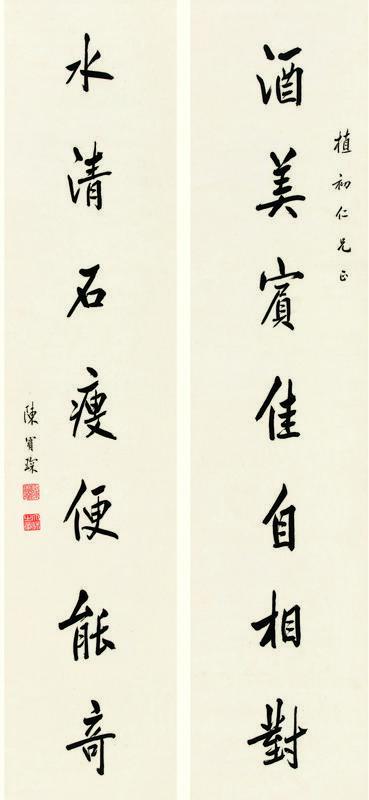 植初仁兄正
酒美賓佳自相對
水清石瘦便能奇
陳寶琛